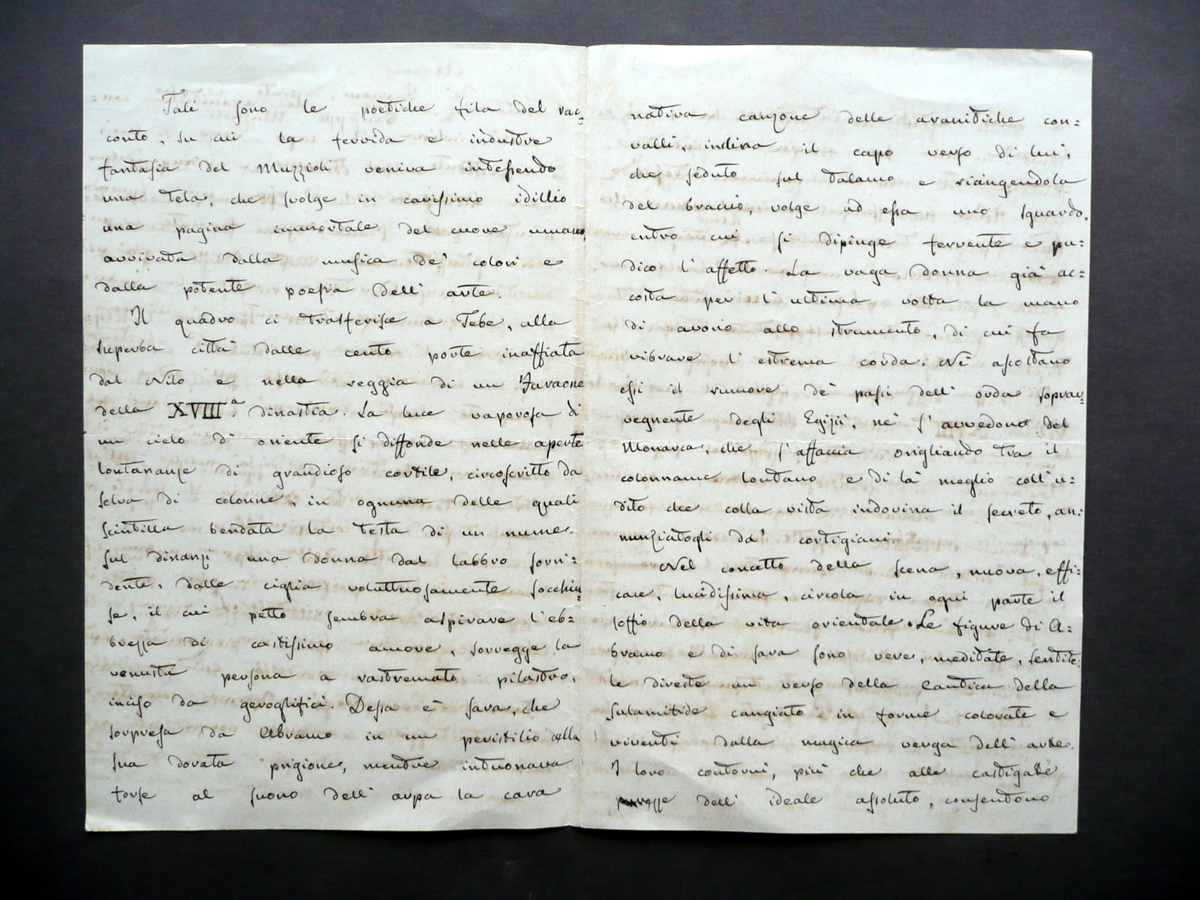 Tali sono le poetiche fila del rac=
conto, su cui la fervida e industre
fantasia del Muzzioli veniva intessendo
una tela, che svolge in carissimo idillio
una pagina immortale del cuore umano,
avvivata dalla musica de' colori e
dalla potente poesia dell' arte.
Il quadro ci trasferisce a Tebe, alla
superba città dalle cento porte inaffiata
dal Nilo e nella reggia di un Faraone
della XVIIIª dinastia. La luce vaporosa di
un cielo d' oriente si diffonde nelle aperte
lontananze di grandioso cortile, circoscritto da
selva di colonne, in ognuna delle quali
scintilla bendata la testa di un nume.
Sul dinanzi una donna dal labbro sorri=
dente, dalle ciglia voluttuosamente socchiu=
se, il cui petto sembra aspirare l'eb=
brezza di castissimo amore, sorregge la
venusta persona a rastremato pilastro,
inciso da geroglifici. Dessa è Sara, che
sorpresa da Abramo in un peristilio della
sua dorata prigione, mentre intuonava
forse al suono dell' arpa la cara
nativa canzone delle aranitiche con=
valli, inclina il capo verso di lui,
che seduto sul talamo e ricingendola
del braccio, volge ad essa uno sguardo,
entro cui si dipinge fervente e pu=
dico l' affetto. La vaga donna già ac=
costa per l' ultima volta la mano
di avorio allo strumento, di cui fa
vibrare l' estrema corda. Nè ascoltano
essi il rumore de' passi dell' orda soprav=
vegnente degli Egizii, nè s' avvedono del
Monarca, che s' affaccia origliando tra il
colonname lontano e di là meglio coll' u=
dito che colla vista indovina il secreto, an=
nunziatogli da' cortigiani.
Nel concetto della scena, nuova, effi=
cace, lucidissima, circola in ogni parte il
soffio della vita orientale. Le figure di A=
bramo e di Sara sono vere, meditate, sentite.
le direste un verso della Cantica della
Sulamitide cangiato in forme colorate e
viventi dalla magica verga dell' arte.
I loro contorni, più che alle castigate
dell' ideale assoluto, consentono